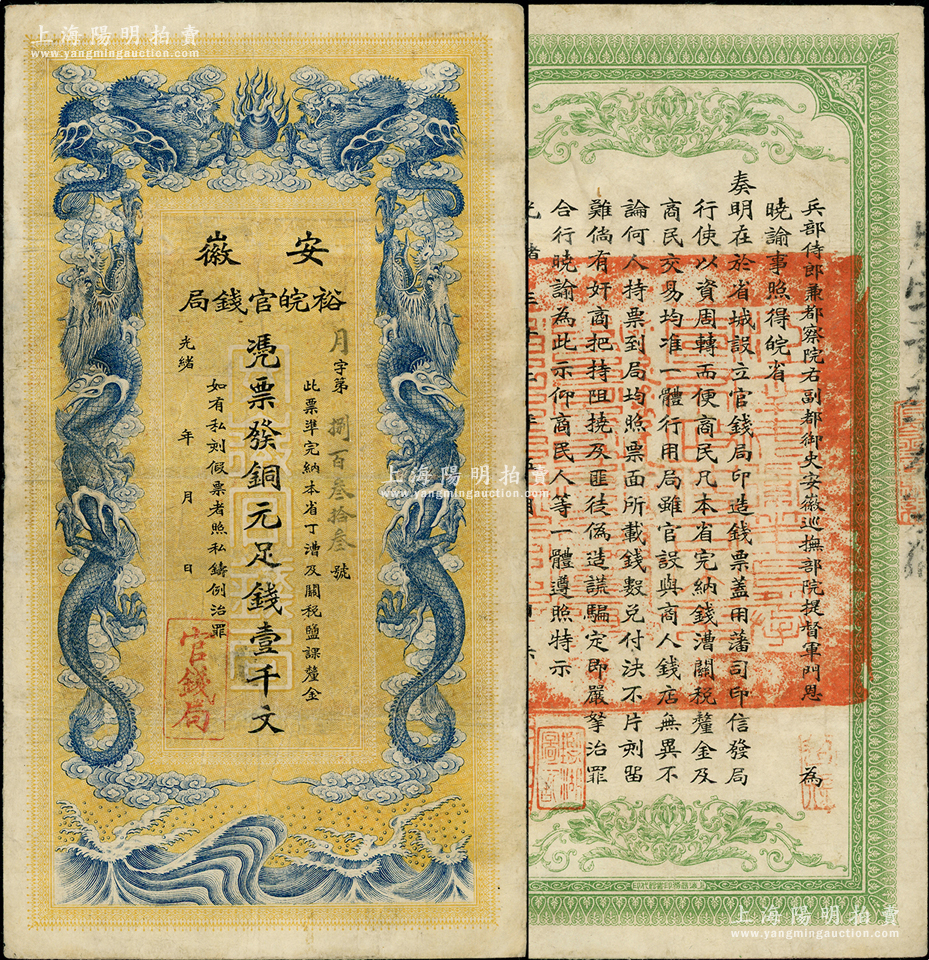 上海陽明拍賣
www.yangmingauction.com
安徽
裕皖官錢局
月字第捌百叁拾叁號
此票準完納本省丁漕及關稅鹽課釐金
憑票發銅元足錢壹千文
如有私刻假票者照私鑄例治罪
光緒 年 月 日
官錢局
上海陽明拍賣
www.yangmingauction.com
兵部侍郎兼都察院右副都御史安徽巡撫部院提督軍門恩 為
曉諭事照得皖省
奏明在於省城設立官錢局印造錢票蓋用藩司印信發局
行使以資周轉而便商民凡本省完納錢漕關稅釐金及
商民交易均准一體行用局雖官設與商人錢店無異不
論何人持票到局均照票面所載錢數兌付決不片刻留
難倘有奸商把持阻撓及匪徒偽造謊騙定即嚴拏治罪
合行曉諭為此示仰商民人等一體遵照特示
光緒
上海陽明拍賣
www.yangmingauction.com